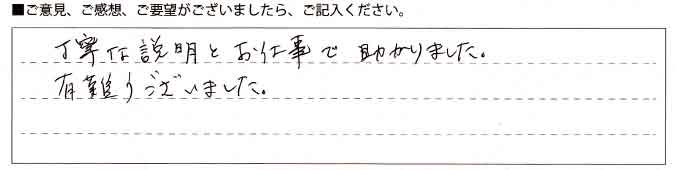 ■ご意見、ご感想、ご要望がございましたら、ご記入ください。
丁寧な説明とお仕事で助かりました。
有難うございました。